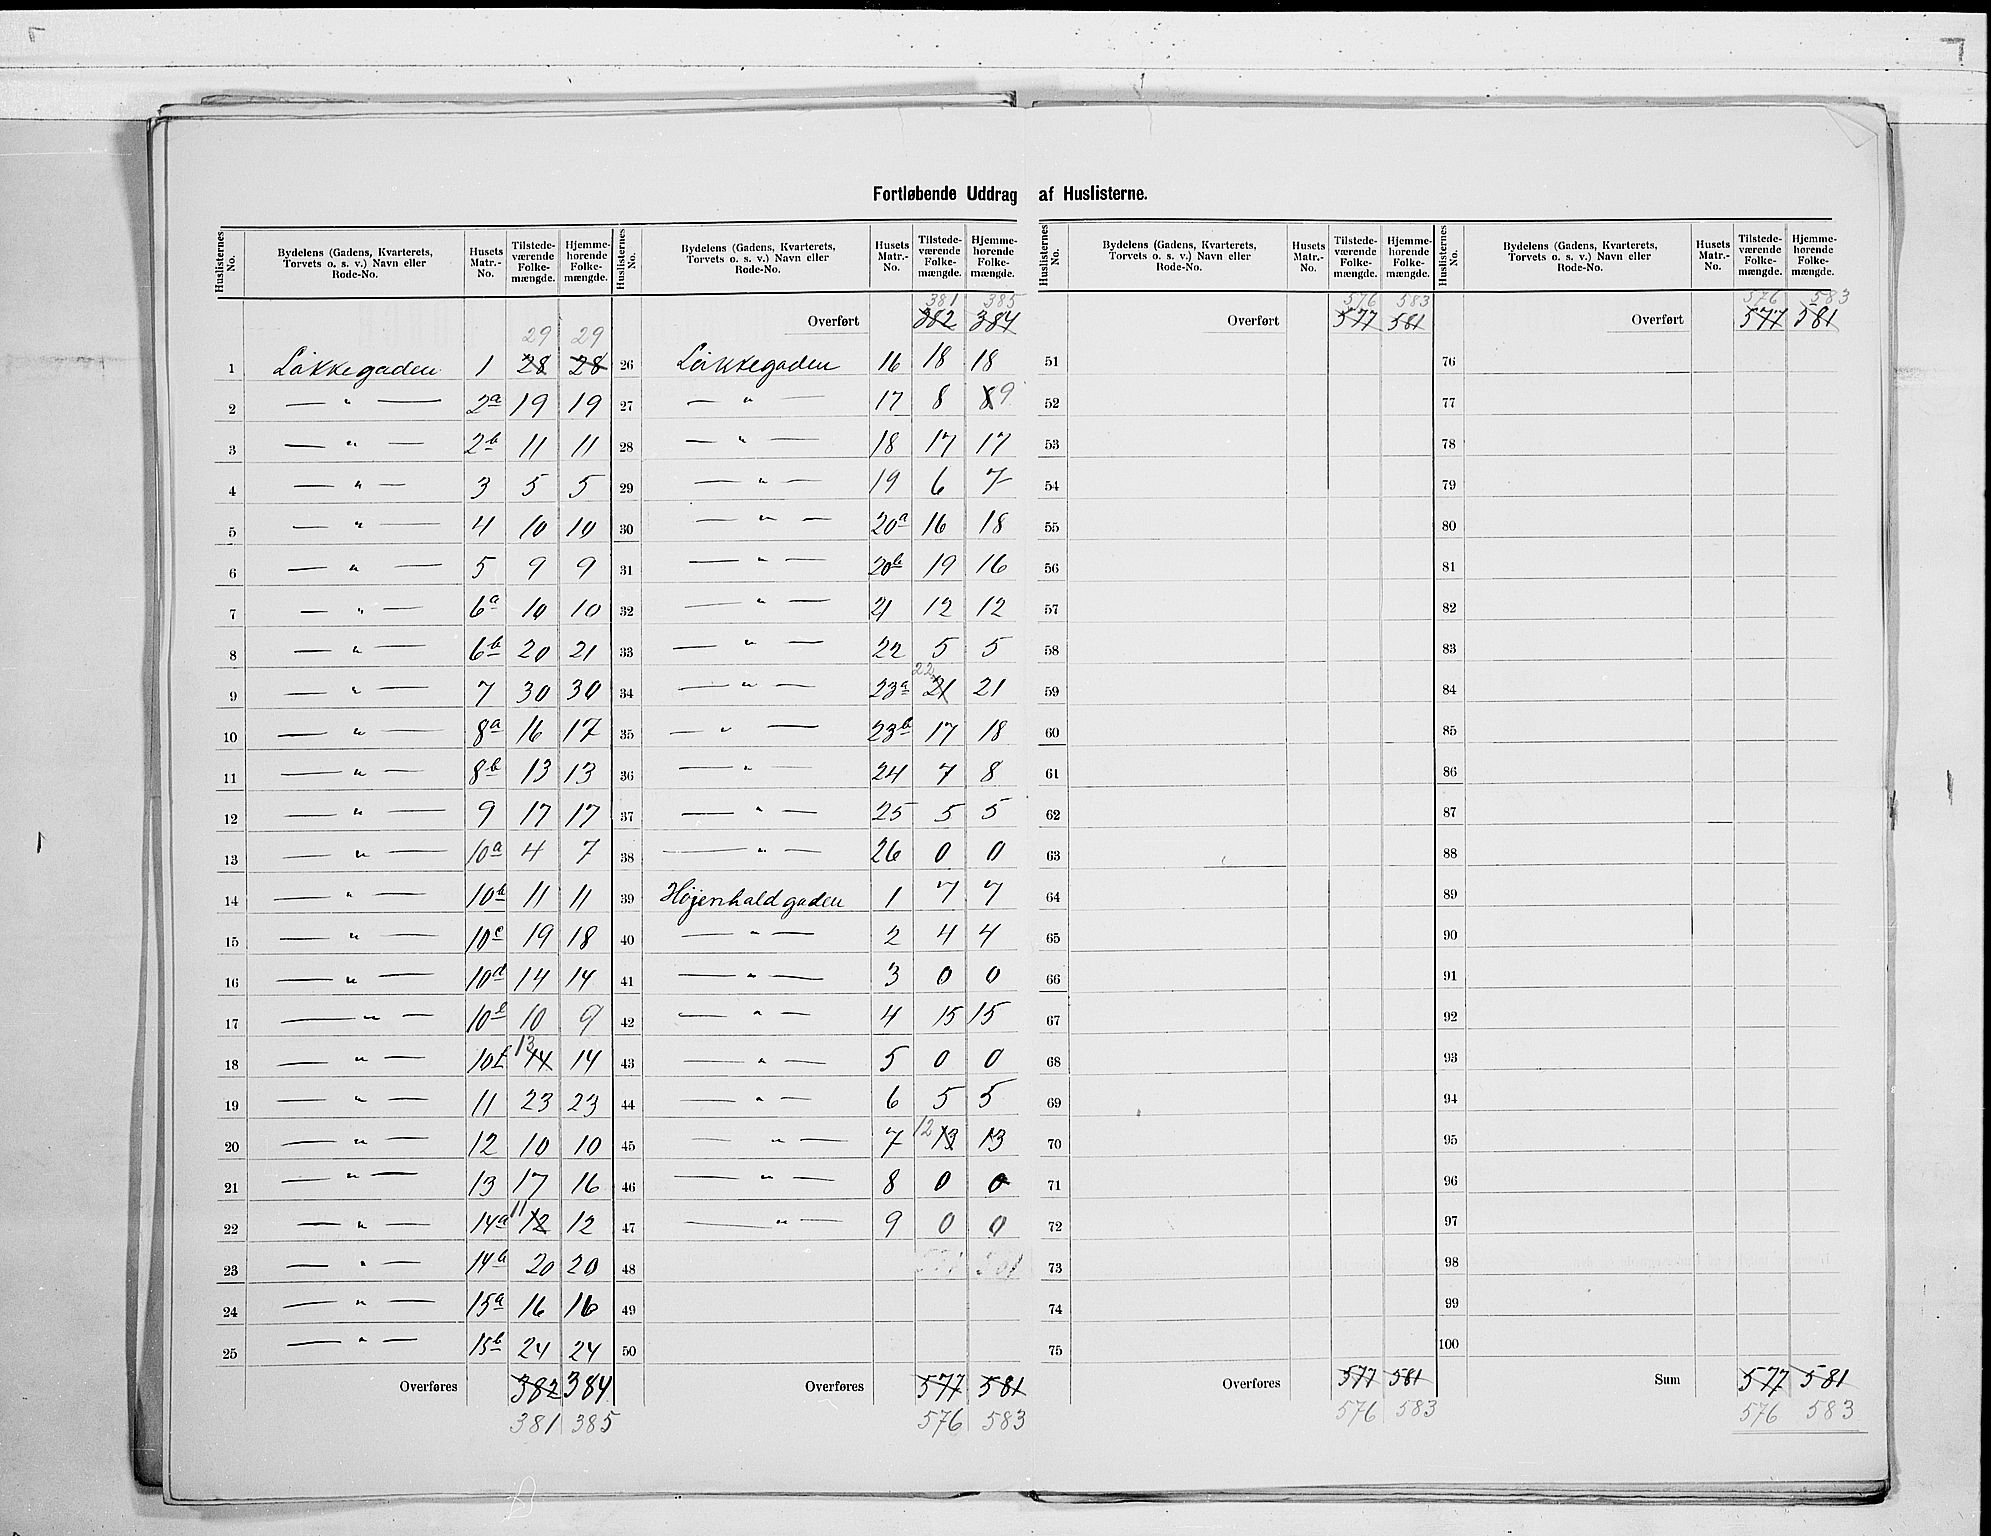 Fortløbende Uddrag af Huslisterne.
Huslisternes No. Bydelens (Gadens, Kvarterets, Torvets o. s. v.) Navn eller Rode-No. Husets Matr.-No. Tilstedeværende Folkemængde. Hjemmehørende Folkemængde.
29 29
1 Løkkegaden 1 28 28
2 — " — 2a 19 19
3 — " — 2b 11 11
4 — " — 3 5 5
5 — " — 4 10 10
6 — " — 5 9 9
7 — " — 6a 10 10
8 — " — 6b 20 21
9 — " — 7 30 30
10 — " — 8a 16 17
11 — " — 8b 13 13
12 — " — 9 17 17
13 — " — 10a 4 7
14 — " — 10b 11 11
15 — " — 10c 19 18
16 — " — 10d 14 14
17 — " — 10e 10 9
18 — " — 10f 13 14 14
19 — " — 11 23 23
20 — " — 12 10 10
21 — " — 13 17 16
22 — " — 14a 11 12 12
23 — " — 14b 20 20
24 — " — 15a 16 16
25 — " — 15b 24 24
Overføres 382 384
381 385
Huslisternes No. Bydelens (Gadens, Kvarterets, Torvets o. s. v.) Navn eller Rode-No. Husets Matr.-No. Tilstedeværende Folkemængde. Hjemmehørende Folkemængde.
381 385
Overført 382 384
26 Løkkegaden 16 18 18
27 — " — 17 8 8 9
28 — " — 18 17 17
29 — " — 19 6 7
30 — " — 20a 16 18
31 — " — 20b 19 16
32 — " — 21 12 12
33 — " — 22 5 5
34 — " — 23a 22 21 21
35 — " — 23b 17 18
36 — " — 24 7 8
37 — " — 25 5 5
38 — " — 26 0 0
39 Højenhaldgaden 1 7 7
40 — " — 2 4 4
41 — " — 3 0 0
42 — " — 4 15 15
43 — " — 5 0 0
44 — " — 6 5 5
45 — " — 7 12 13 13
46 — " — 8 0 0
47 — " — 9 0 0
48
49
50
Overføres 577 581
576 583
Huslisternes No. Bydelens (Gadens, Kvarterets, Torvets o. s. v.) Navn eller Rode-No. Husets Matr.-No. Tilstedeværende Folkemængde. Hjemmehørende Folkemængde.
576 583
Overført 577 581
51
52
53
54
55
56
57
58
59
60
61
62
63
64
65
66
67
68
69
70
71
72
73
74
75
Overføres 577 581
576 583
Huslisternes No. Bydelens (Gadens, Kvarterets, Torvets o. s. v.) Navn eller Rode-No. Husets Matr.-No. Tilstedeværende Folkemængde. Hjemmehørende Folkemængde.
576 583
Overført 577 581
76
77
78
79
80
81
82
83
84
85
86
87
88
89
90
91
92
93
94
95
96
97
98
99
100
Sum 577 581
576 583